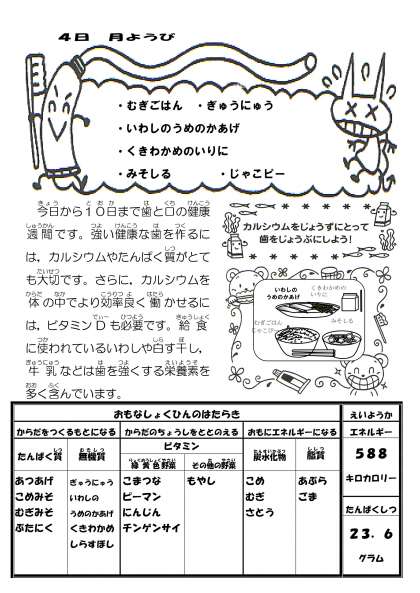 4日　月ようび
・むぎごはん　・ぎゅうにゅう
・いわしのうめのかあげ
・くきわかめのいりに
・みそしる　・じゃこピー
今日から１０日まで歯と口の健康
週間です。強い健康な歯を作るに
は、カルシウムやたんぱく質がとて
も大切です。さらに、カルシウムを
体の中でより効率良く働かせるに
は、ビタミンＤも必要です。給食
に使われているいわしや白す干し、
牛乳などは歯を強くする栄養素を
多く含んでいます。
カルシウムをじょうずにとって
歯をじょうぶにしよう！
いわしの
うめのかあげ
くきわかめの
いりに
むぎごはん
じゃこピー
みそしる
おもなしょくひんのはたらき
えいようか
からだをつくるもとになる
からだのちょうしをととのえる
おもにエネルギーになる
エネルギー
たんぱく質
無機質
ビタミン
緑黄色野菜
その他の野菜
炭水化物
脂質
588
キロカロリー
たんぱくしつ
23.6
グラム
あつあげ
こめみそ
むぎみそ
ぶたにく
ぎゅうにゅう
いわしの
うめのかあげ
くきわかめ
しらすぼし
こまつな
ピーマン
にんじん
チンゲンサイ
もやし
こめ
むぎ
さとう
あぶら
ごま